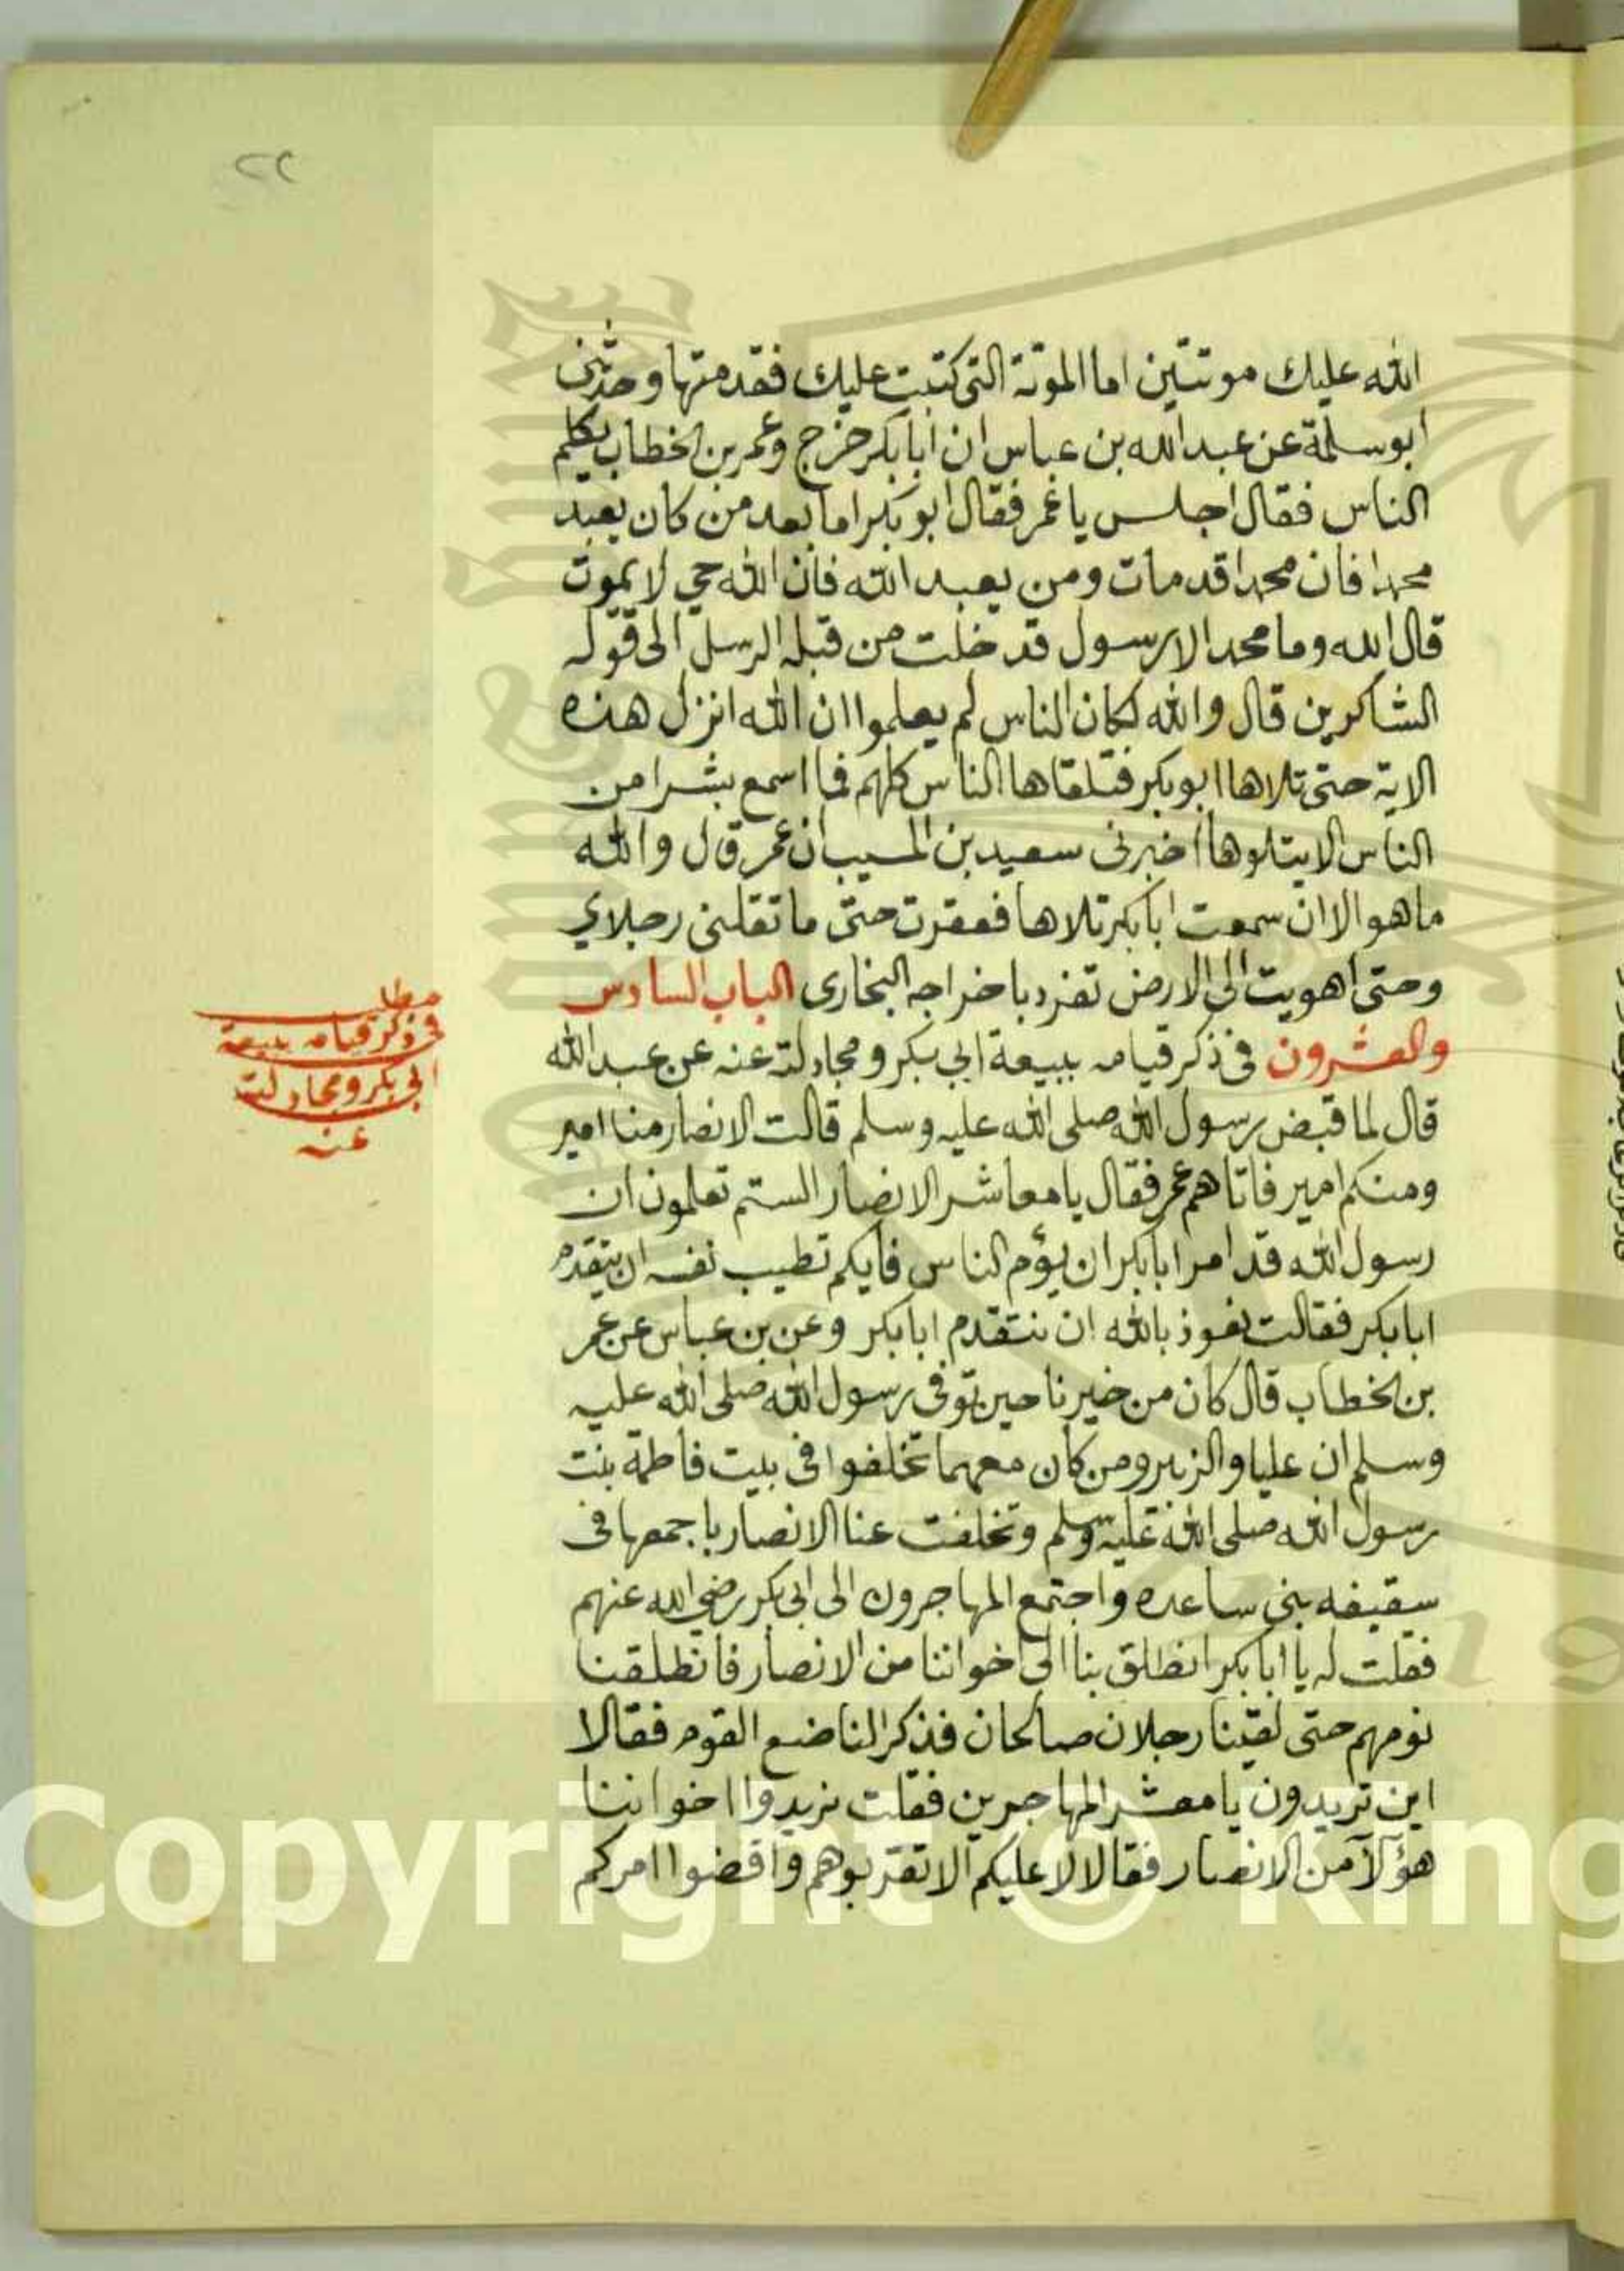 ٢٢
الله عليك موتتين اما الموتة التى كتبت عليك فقد متها وحدثنى
ابو سلمة عن عبد الله بن عباس ان ابا بكر خرج وعمر بن الخطاب يكلم
الناس فقال اجلس يا عمر فقال ابو بكر اما بعد من كان يعبد
محمدا فان محمدا قد مات ومن يعبد الله فان الله حي لا يموت
قال الله وما محمد الا رسول قد خلت من قبله الرسل الى قوله
الشاكرين قال والله لكان الناس لم يعلموا ان الله انزل هذه
الاية حتى تلاها ابو بكر فتلقاها الناس كلهم فما اسمع بشرا من
الناس الا يتلوها اخبرنى سعيد بن المسيب ان عمر قال والله
ما هو الا ان سمعت ابا بكر تلاها فعقرت حتى ما تقلنى رجلاي
وحتى اهويت الى الارض تفرد باخراجه البخارى الباب السادس
والعشرون فى ذكر قيامه ببيعة ابي بكر ومجادلته عنه عن عبد الله
قال لما قبض رسول الله صلى الله عليه وسلم قالت الانصار منا امير
ومنكم امير فاتاهم عمر فقال يا معاشر الانصار الستم تعلمون ان
رسول الله قد امر ابا بكر ان يؤم الناس فايكم تطيب نفسه ان يتقدم
ابا بكر فقالت نعوذ بالله ان نتقدم ابا بكر وعن بن عباس عن عمر
بن الخطاب قال كان من خيرنا حين توفى رسول الله صلى الله عليه
وسلم ان عليا والزبير ومن كان معهما تخلفوا فى بيت فاطمة بنت
رسول الله صلى الله عليه وسلم وتخلفت عنا الانصار باجمعها فى
سقيفه بنى ساعده واجتمع المهاجرون الى ابى بكر رضي الله عنهم
فقلت له يا ابا بكر انطلق بنا الى اخواننا من الانصار فانطلقنا
نومهم حتى لقينا رجلان صالحان فذكر لنا ضع القوم فقالا
اين تريدون يا معشر المهاجرين فقلت نريدوا اخواننا
هؤلآ من الانصار فقالا لا عليكم الا تقربوهم واقضوا امركم
مطلب
فى ذكر قيامه ببيعة
ابي بكر ومجادلته
عنه
Copyright © King